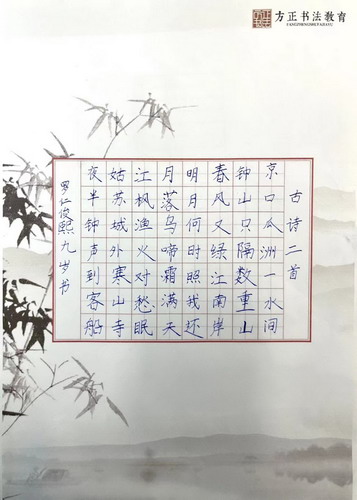 方正书法教育
古诗二首
京口瓜洲一水间
钟山只隔数重山
春风又绿江南岸
明月何时照我还
月落乌啼霜满天
江枫渔火对愁眠
姑苏城外寒山寺
夜半钟声到客船
罗仁俊熙九岁书